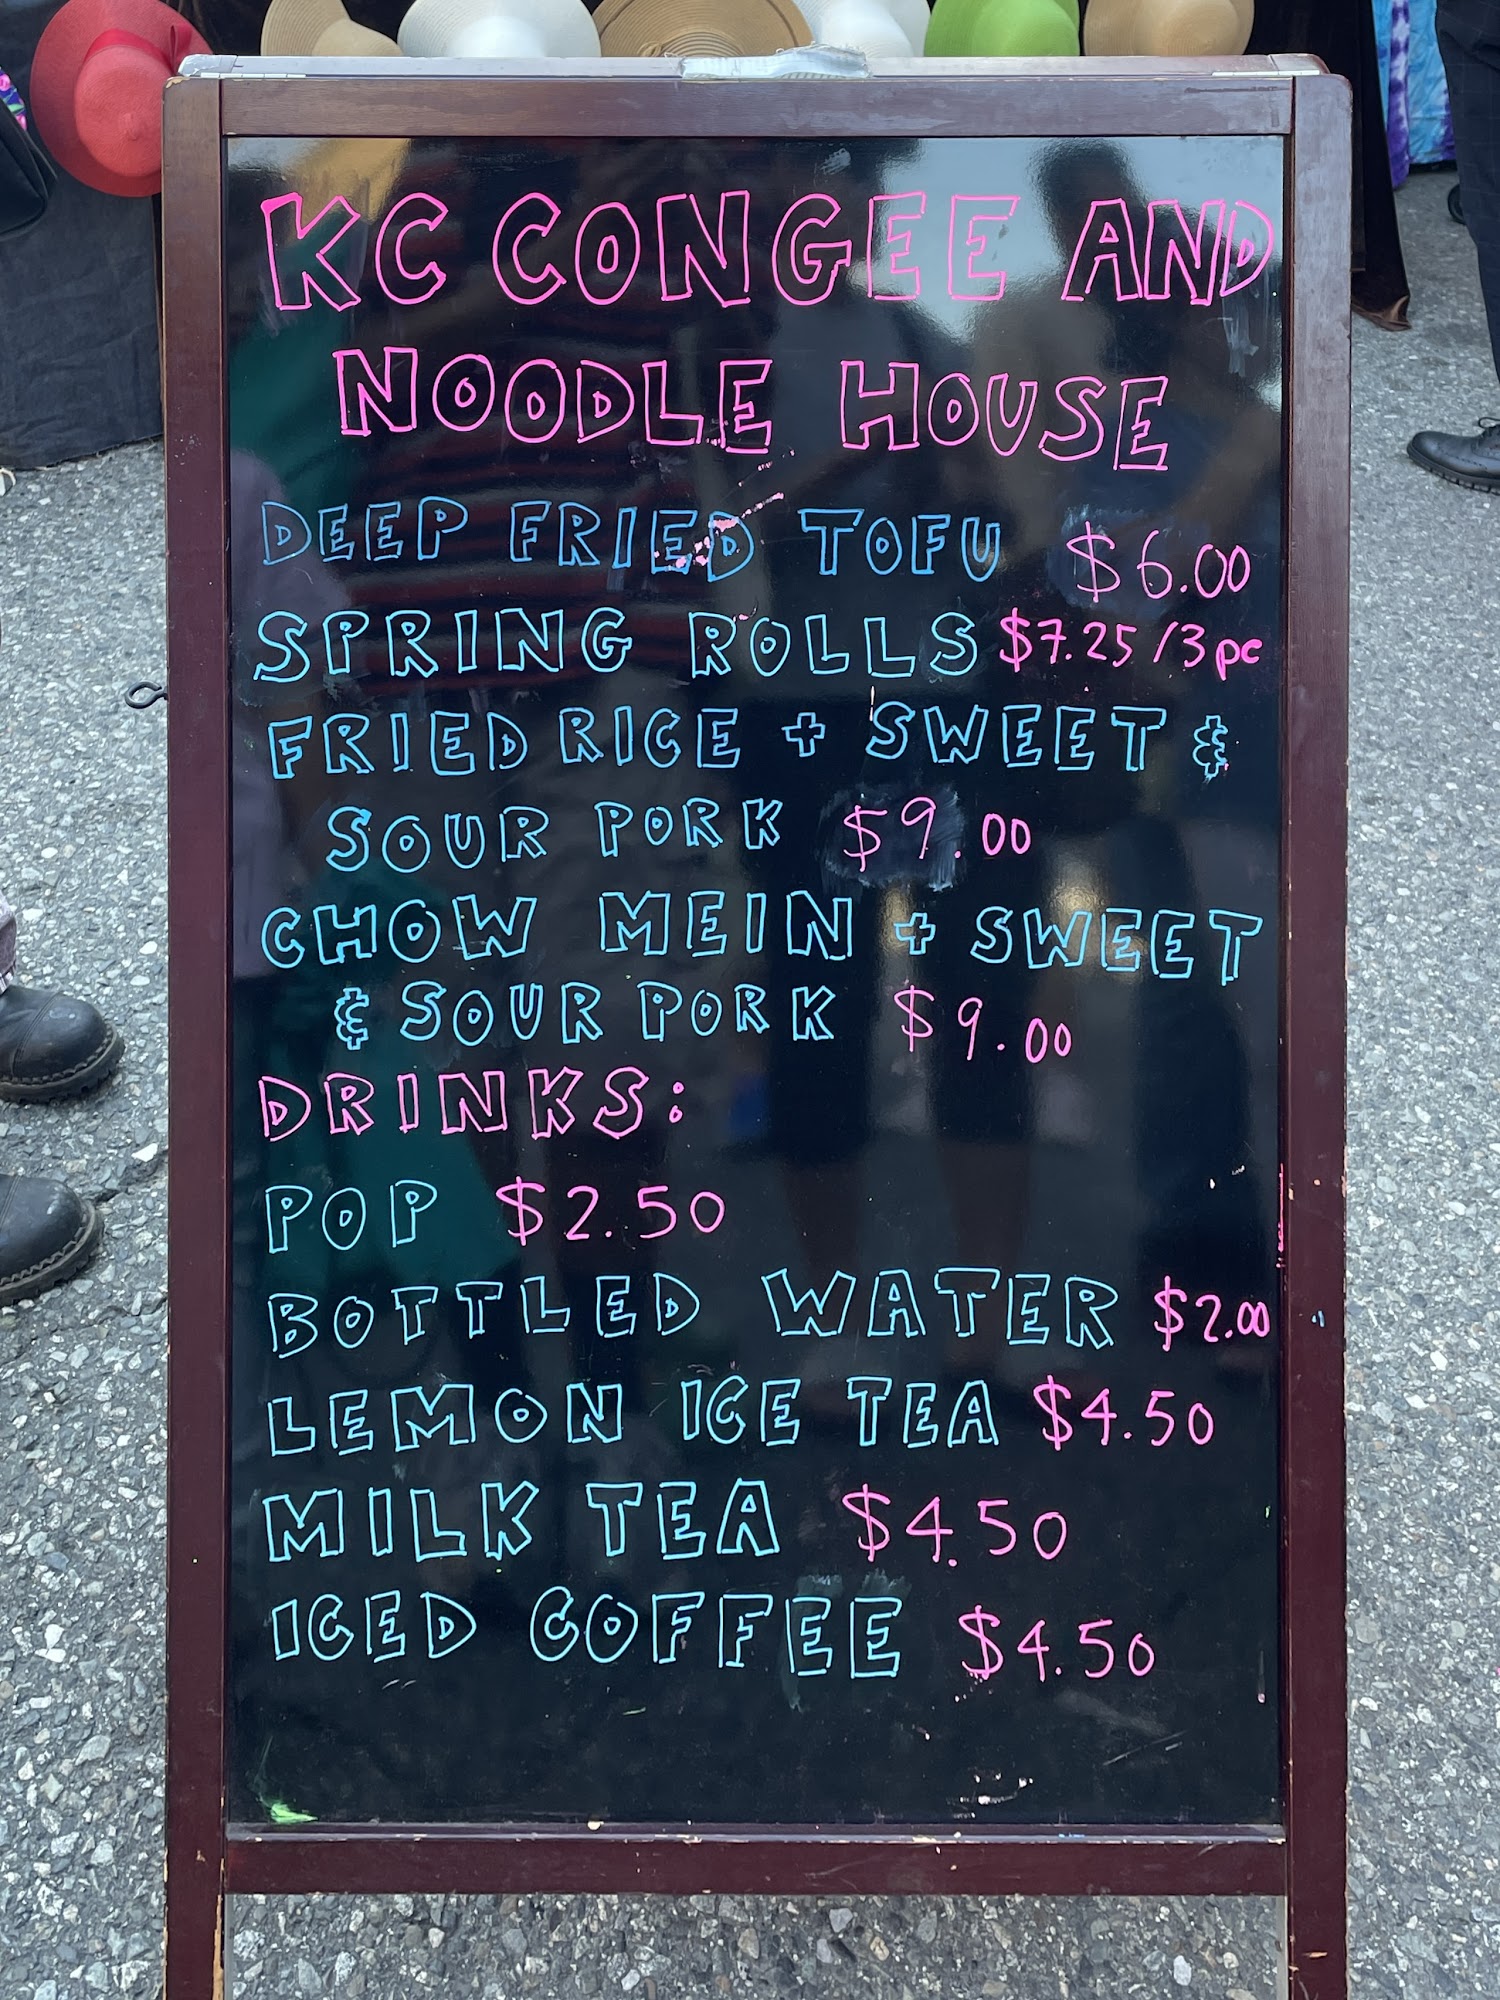 KC CONGEE AND
NOODLE HOUSE
DEEP FRIED TOFU $6.00
SPRING ROLLS $7.25/3pc
FRIED RICE + SWEET &
SOUR PORK $9.00
CHOW MEIN + SWEET
& SOUR PORK $9.00
DRINKS:
POP $2.50
BOTTLED WATER $2.00
LEMON ICE TEA $4.50
MILK TEA $4.50
ICED COFFEE $4.50